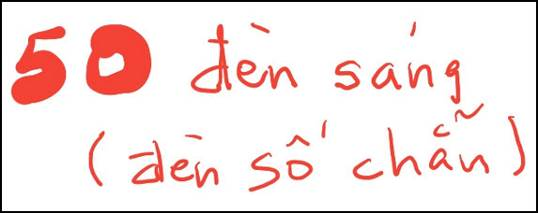 50 đèn sáng
(đèn số chẵn)